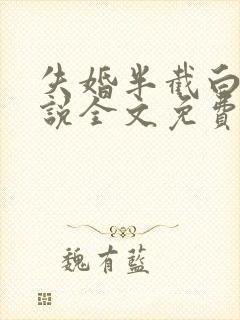 失婚半截白
說全文免費
魏有藍